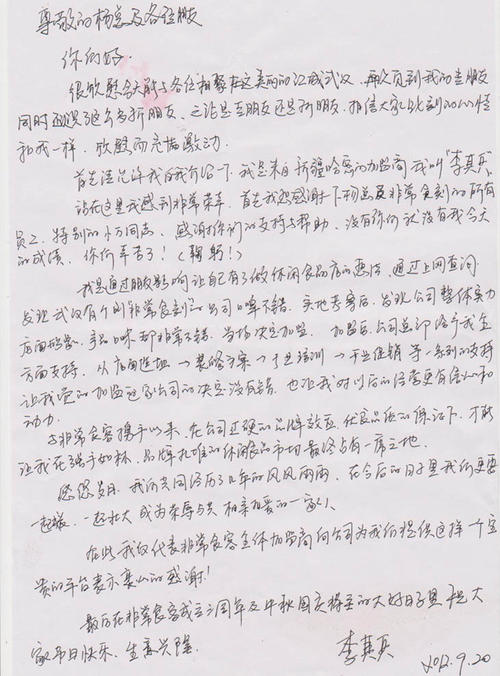 尊敬的杨总及各位朋友
你们好.
很欣慰今天能与各位相聚在这美丽的江城武汉，再次见到我的老朋友
同时还认识了这么多新朋友，无论是老朋友还是新朋友，相信大家此刻的心情
和我一样，欣慰而充满激动.
首先请允许我自我介绍一下，我是来自新疆哈密的加盟商我叫"李真真"
站在这里我感到非常荣幸，首先我想感谢一下杨总及非常食刻的所有
员工，特别的小万同志，感谢你们的支持与帮助，没有你们就没有我今天
的成绩，你们辛苦了！（鞠躬！）
我是通过朋友影响让自己有了做休闲食品店的想法，通过上网查询.
发现武汉有个叫非常食刻的公司口碑不错，实地考察后，发现公司整体实力
店面形象，产品口味都非常不错，当场决定加盟，加盟后，公司总部给予我全
方面支持，从店面选址→装修方案→开业培训→开业促销等一系列的支持
让我觉的加盟这家公司的决定没有错，也让我对以后的经营更有信心和
动力.
与非常食客携手以来，在公司过硬的品牌效应，优良品质的保证下，才能
让我在强手如林，品牌扎堆的休闲食品市场最终占有一席之地.
悠悠岁月，我们共同经历了几年的风风雨雨，在今后的日子里我们更要
一起成长，一起壮大成为荣辱与共相亲相爱的一家人.
在此我仅代表非常食客全体加盟商向公司为我们提供这样一个宝
贵的平台表示衷心的感谢！
最后在非常食客成立三周年及中秋国庆将至的大好日子里，祝大
家节日快乐，生意兴隆.
李真真 2012.9.20